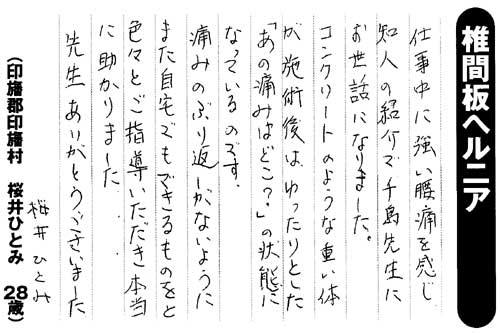 椎間板ヘルニア
仕事中に強い腰痛を感じ
知人の紹介で千島先生に
お世話になりました。
コンクリートのような重い体
が施術後は、ゆったりとした
「あの痛みはどこ？」の状態に
なっているのです。
痛みのぶり返しがないように
また自宅でもできるものをと
色々とご指導いただき本当
に助かりました。
先生ありがとうございました
桜井ひとみ
（印旛郡印旛村　桜井ひとみ　28歳）